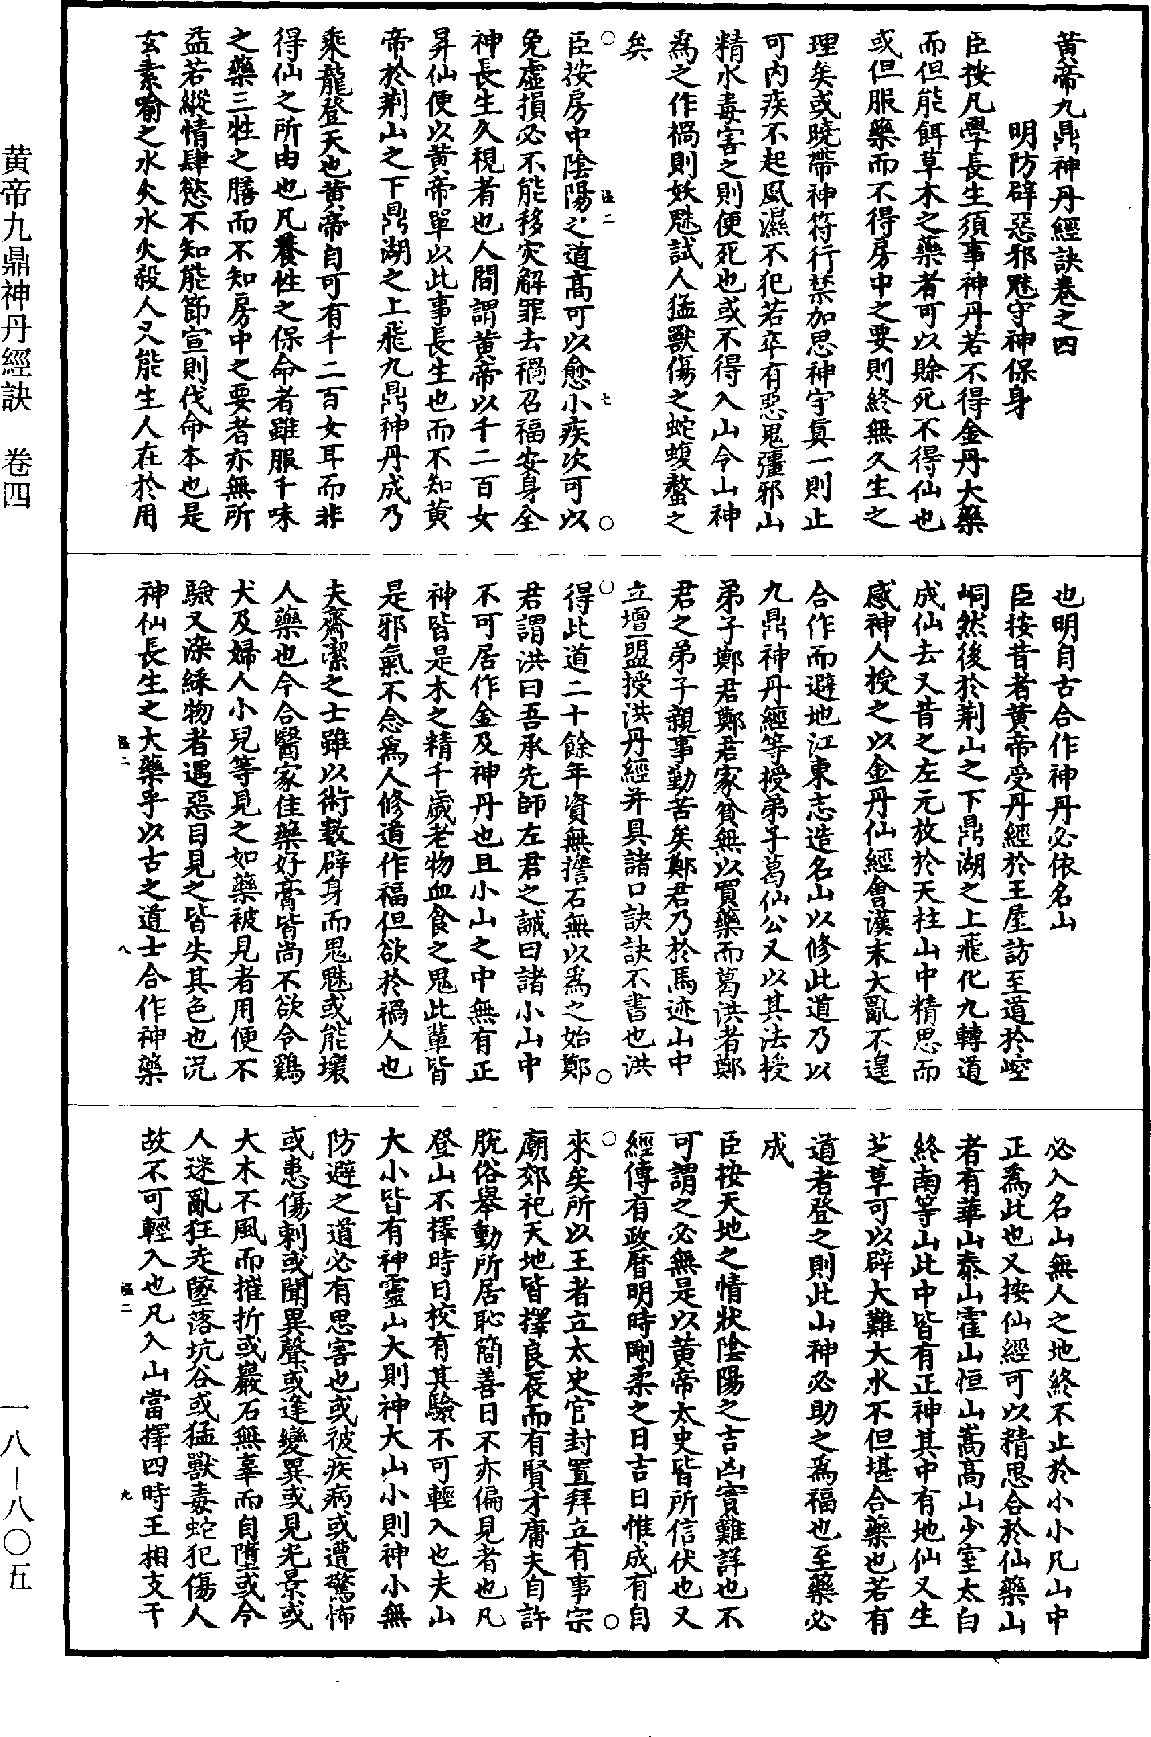 黃帝九鼎神丹經訣卷之四
明防辟惡邪魅守神保身
臣按凡學長生須事神丹若不得金丹大藥
而但能餌草木之藥者可以賒死不得仙也
或但服藥而不得房中之要則終無久生之
理矣或曉帶神符行禁加思神守真一則止
可內疾不起風濕不犯若卒有惡鬼彊邪山
精水毒害之則便死也或不得入山令山神
為之作禍則妖魅試人猛獸傷之蛇蝮螫之
矣
臣按房中陰陽之道高可以愈小疾次可以
免虛損必不能移灾解罪去禍召福安身全
神長生久視者也人間謂黃帝以千二百女
昇仙便以黃帝單以此事長生也而不知黃
帝於荊山之下鼎湖之上飛九鼎神丹成乃
乘龍登天也黃帝自可有千二百女耳而非
得仙之所由也凡養性之保命者雖服千味
之藥三牲之膳而不知房中之要者亦無所
益若縱情肆慾不知能節宣則伐命本也是
玄素喻之水火水火殺人又能生人在於用
也明自古合作神丹必依名山
臣按昔者黃帝受丹經於王屋訪至道於崆
峒然後於荊山之下鼎湖之上飛化九轉道
成仙去又昔之左元放於天柱山中精思而
感神人授之以金丹仙經會漢末大亂不遑
合作而避地江東志造名山以修此道乃以
九鼎神丹經等授弟子葛仙公又以其法授
弟子鄭君鄭君家貧無以買藥而葛洪者鄭
君之弟子親事勤苦矣鄭君乃於馬迹山中
立壇盟授洪丹經并具諸口訣訣不書也洪
得此道二十餘年資無擔石無以為之始鄭
君謂洪曰吾承先師左君之誠曰諸小山中
不可居作金及神丹也且小山之中無有正
神皆是木之精千歲老物血食之鬼此輩皆
是邪氣不念為人修道作福但欲於禍人也
夫齋潔之士雖以術數辟身而鬼魅或能壞
人藥也今合醫家佳藥好膏皆尚不欲令鷄
犬及婦人小兒等見之如藥被見者用便不
驗又染綵物者遇惡目見之皆失其色也况
神仙長生之大藥乎以古之道士合作神藥
必入名山無人之地終不止於小小凡山中
正為此也又按仙經可以精思合於仙藥山
者有華山泰山霍山恒山嵩高山少室太白
終南等山此中皆有正神其中有地仙又生
芝草可以辟大難大水不但堪合藥也若有
道者登之則此山神必助之為福也至藥必
成
臣按天地之情狀陰陽之吉凶實難詳也不
可謂之必無是以黃帝太史皆所信伏也又
經傳有政曆明時剛柔之日吉日惟成有自
來矣所以王者立太史官封置拜立有事宗
廟郊祀天地皆擇良辰而有賢才庸夫自許
脫俗舉動所居恥簡善日不亦偏見者也凡
登山不擇時日校有其驗不可輕入也夫山
大小皆有神靈山大則神大山小則神小無
防避之道必有思害也或被疾病或遭驚怖
或患傷刺或聞異聲或逢變異或見光景或
大木不風而摧折或巖石無辜而自墮或令
人迷亂狂走墜落坑谷或猛獸毒蛇犯傷人
故不可輕入也凡入山當擇四時王相支干
黃帝九鼎神丹經訣　卷四
一八－八〇五